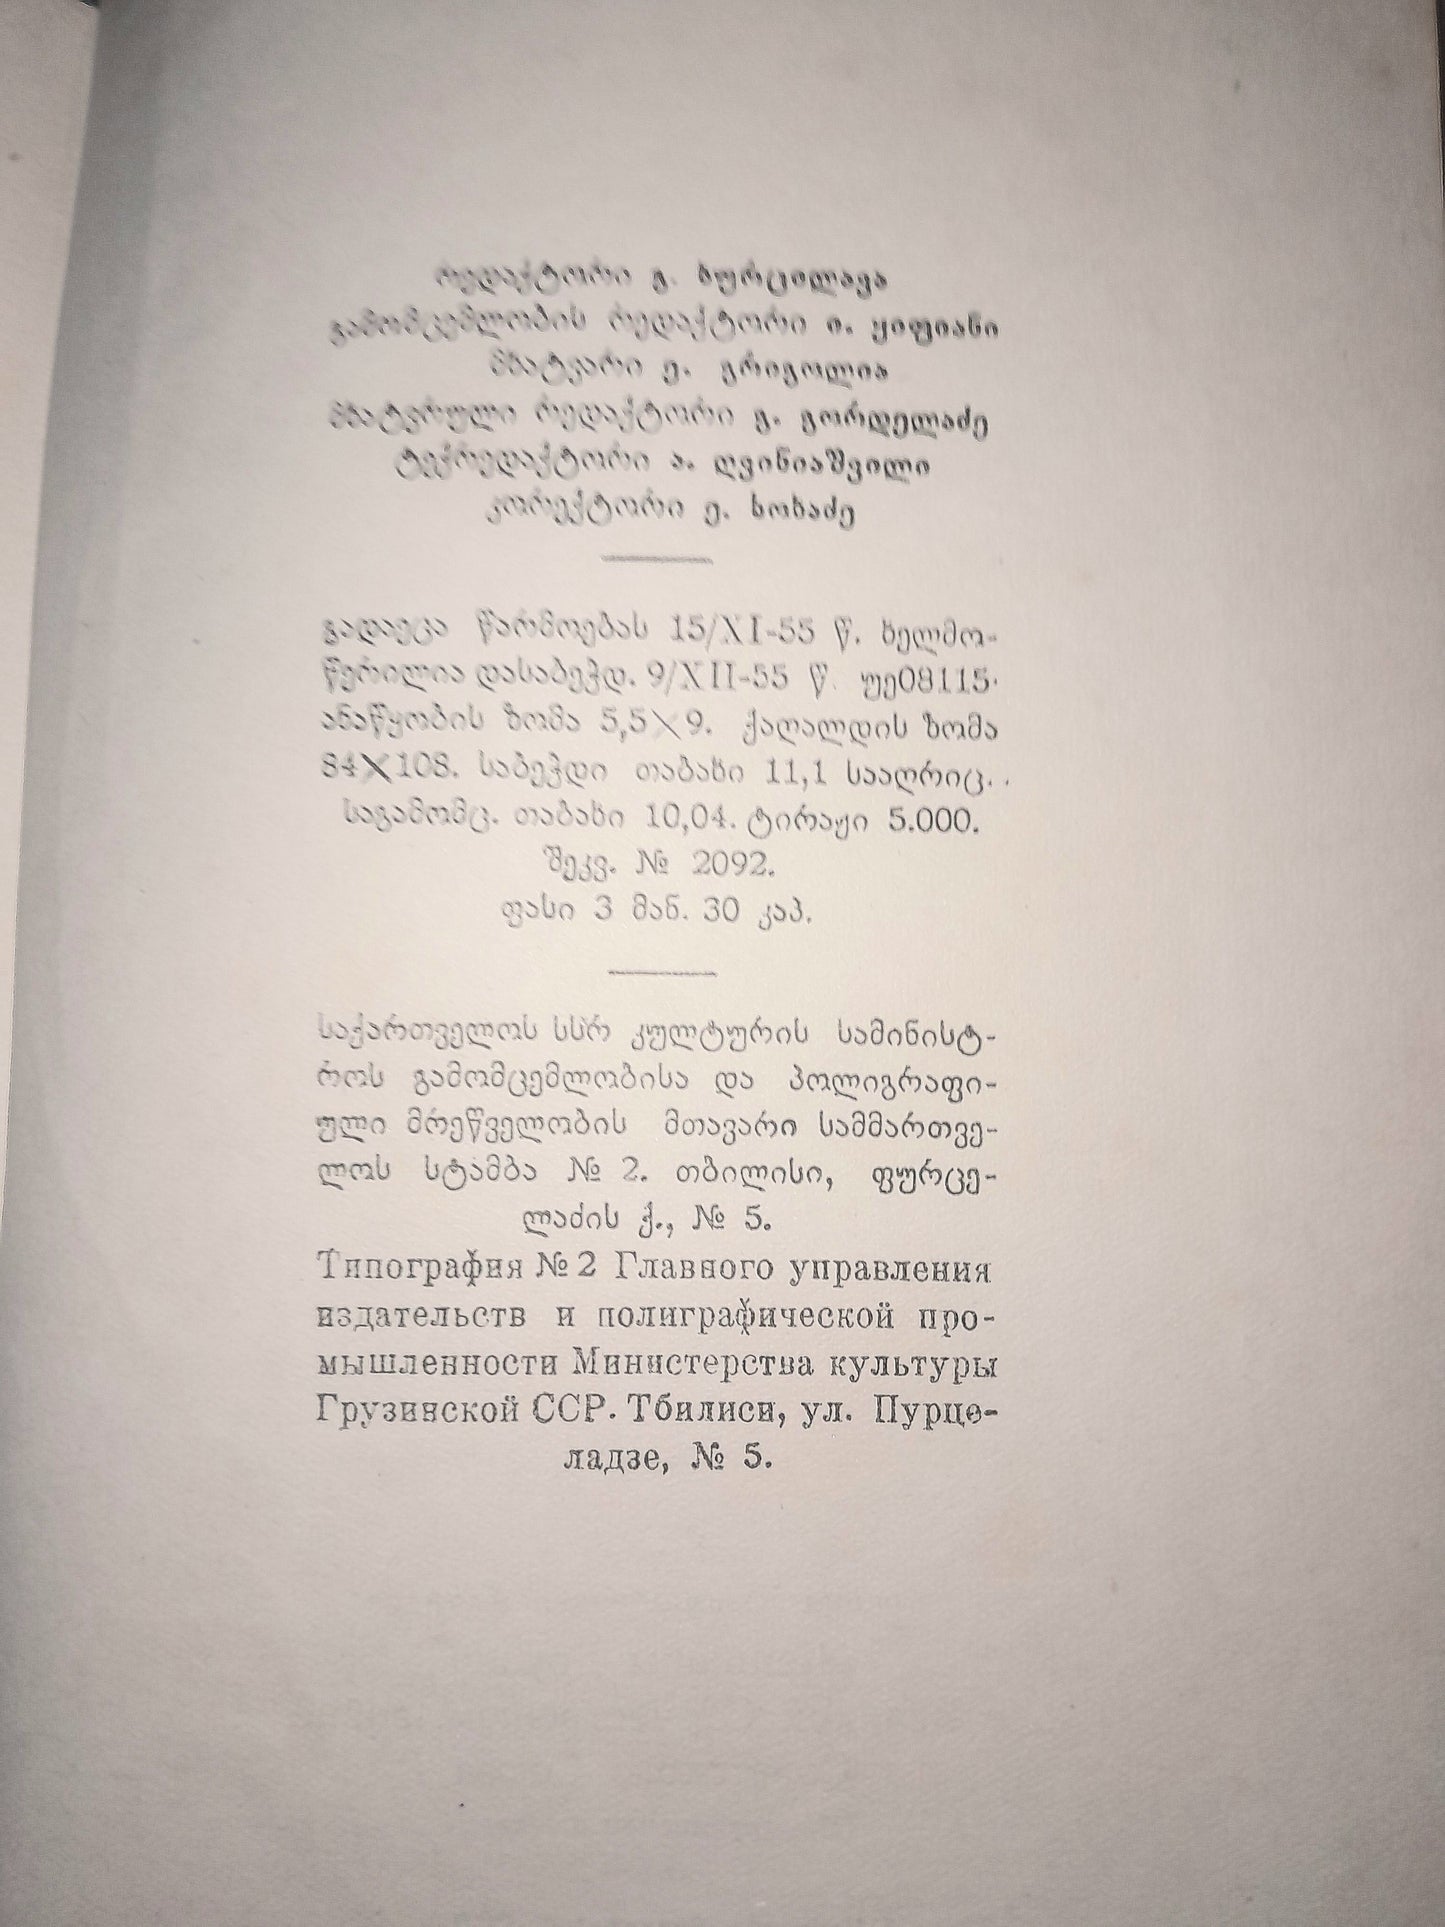 რედაქტორი გ. ბურცილავა
გამომცემლობის რედაქტორი ი. ყიფიანი
მხატვარი ე. გრიგოლია
მხატვრული რედაქტორი გ. გორდელაძე
ტექრედაქტორი ა. ღვინიაშვილი
კორექტორი ე. სოხაძე
გადაეცა წარმოებას 15/XI-55 წ. ხელმო-
წერილია დასაბეჭდ. 9/XII-55 წ. უე08115.
ანაწყობის ზომა 5,5×9. ქაღალდის ზომა
84×108. საბეჭდი თაბახი 11,1 სააღრიც.
საგამომც. თაბახი 10,04. ტირაჟი 5.000.
შეკვ. № 2092.
ფასი 3 მან. 30 კაპ.
საქართველოს სსრ კულტურის სამინისტ-
როს გამომცემლობისა და პოლიგრაფი-
ული მრეწველობის მთავარი სამმართვე-
ლოს სტამბა № 2. თბილისი, ფურცე-
ლაძის ქ., № 5.
Типография № 2 Главного управления
издательств и полиграфической про-
мышленности Министерства культуры
Грузинской ССР. Тбилиси, ул. Пурце-
ладзе, № 5.